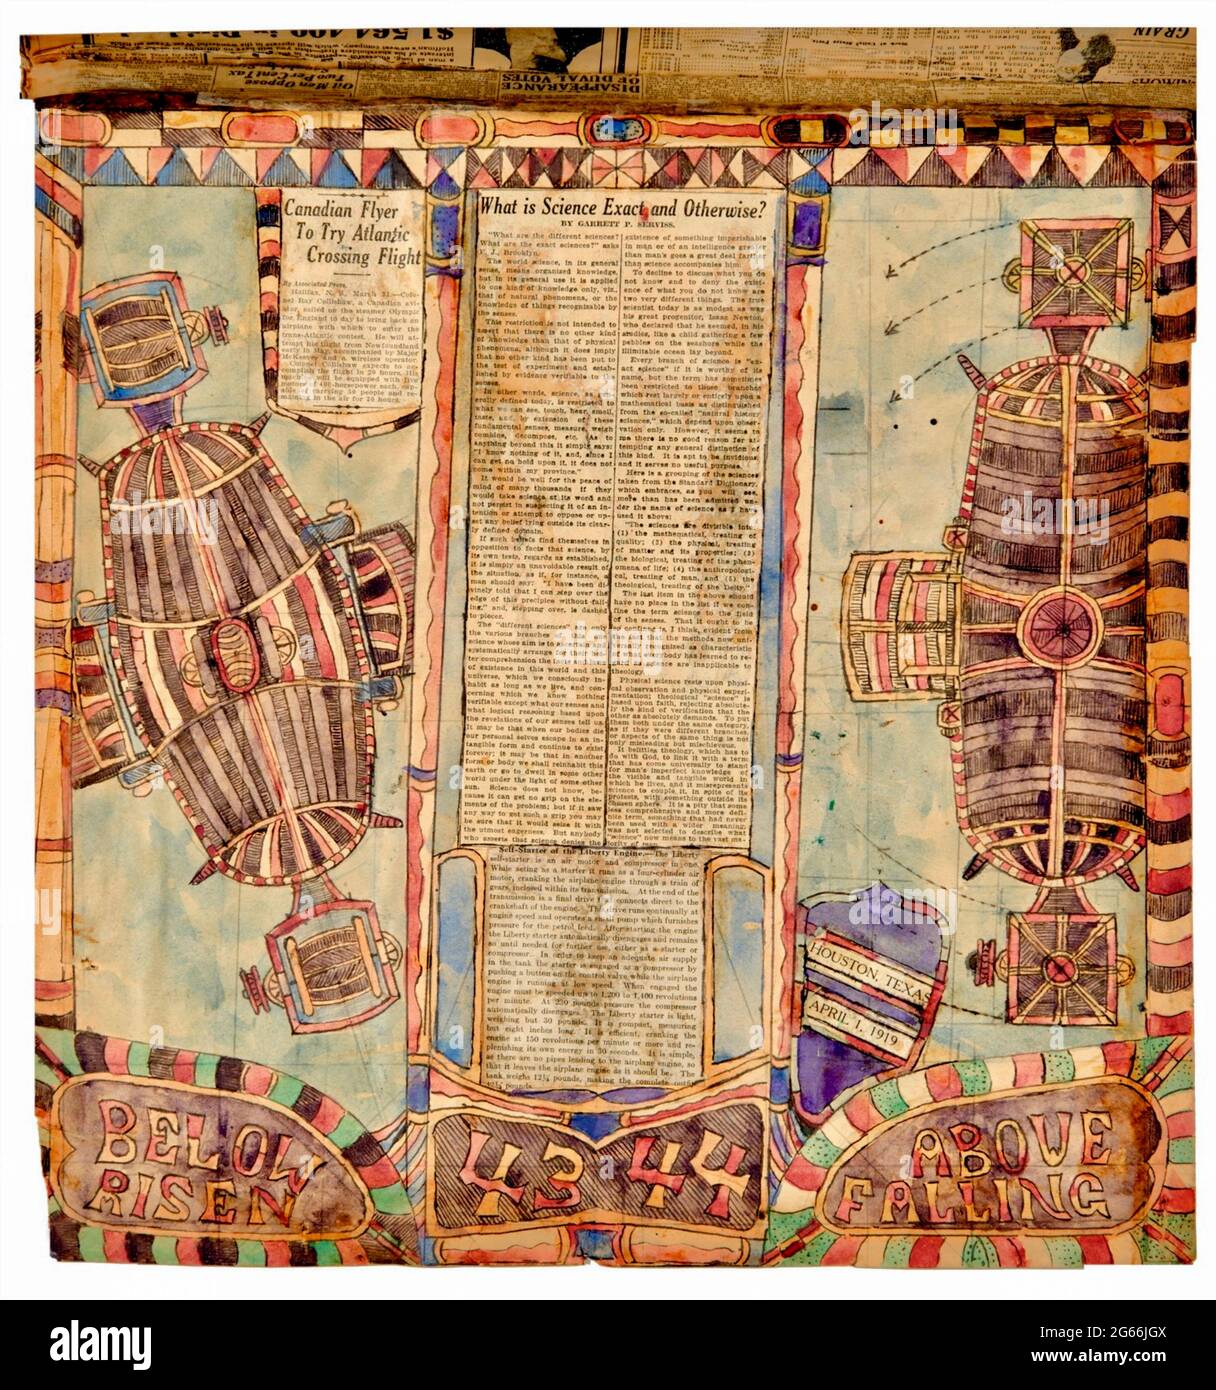 $1,561,400 in
GRAIN
Oil Men Oppose
Two Per Cent Tax
DISAPPEARANCE
OF DUVAL VOTES
Canadian Flyer
To Try Atlantic
Crossing Flight
By Associated Press.
Halifax, N. S., March 31.—Colo-
nel Ray Collishaw, a Canadian avi-
ator, sailed on the steamer Olympic
for England to day to bring back an
airplane with which to enter the
trans-Atlantic contest. He will at-
tempt his flight from Newfoundland
early in May, accompanied by Major
McKenny and a wireless operator.
Colonel Collishaw expects to ac-
complish the flight in 20 hours. His
will be equipped with five
motors of 400-horsepower each, cap-
able of carrying 50 people and re-
maining in the air for 30 hours.
What is Science Exact and Otherwise?
BY GARRETT P. SERVISS.
"What are the different sciences?
What are the exact sciences?" asks
V. J., Brooklyn.
The world science, in its general
sense, means organized knowledge,
but in its general use it is applied
to one kind of knowledge only, viz.,
that of natural phenomena, or the
knowledge of things recognizable by
the senses.
This restriction is not intended to
assert that there is no other kind
of knowledge than that of physical
phenomena, although it does imply
that no other kind has been put to
the test of experiment and estab-
lished by evidence verifiable to the
senses.
In other words, science, as gen-
erally defined today, is restricted to
what we can see, touch, hear, smell,
taste, and, by extension of these
fundamental senses, measure, weigh
combine, decompose, etc. As to
anything beyond this it simply says:
"I know nothing of it, and, since I
can get no hold upon it, it does not
come within my province."
It would be well for the peace of
mind of many thousands if they
would take science at its word and
not persist in suspecting it of an in-
tention or attempt to oppose or up-
set any belief lying outside its clear-
ly defined domain.
If such beliefs find themselves in
opposition to facts that science, by
its own tests, regards as established,
it is simply an unavoidable result of
the situation, as if, for instance, a
man should say: "I have been di-
vinely told that I can step over the
edge of this precipice without fall-
ing," and, stepping over, is dashed
to pieces.
The "different sciences" are only
the various branches of this one
science whose aim is to ascertain and
systematically arrange for their bet-
ter comprehension the facts and laws
of existence in this world and this
universe, which we consciously in-
habit as long as we live, and con-
cerning which we know nothing
verifiable except what our senses and
what logical reasoning based upon
the revelations of our senses tell us.
It may be that when our bodies die
our personal selves escape in an in-
tangible form and continue to exist
forever; it may be that in another
form or body we shall reinhabit this
earth or go to dwell in some other
world under the light of some other
sun. Science does not know, be-
cause it can get no grip on the ele-
ments of the problem; but if it saw
any way to get such a grip you may
be sure that it would seize it with
the utmost eagerness. But anybody
who asserts that science denies the
existence of something imperishable
in man or of an intelligence greater
than man's goes a great deal farther
than science accompanies him.
To decline to discuss what you do
not know and to deny the exist-
ence of what you do not know are
two very different things. The true
scientist today is as modest as was
his great progenitor, Isaac Newton,
who declared that he seemed, in his
studies, like a child gathering a few
pebbles on the seashore while the
illimitable ocean lay beyond.
Every branch of science is "ex-
act science" if it is worthy of its
name, but the term has sometimes
been restricted to those branches
which rest largely or entirely upon a
mathematical basis as distinguished
from the so-called "natural history
sciences," which depend upon obser-
vation only. However, it seems to
me there is no good reason for at-
tempting any general distinction of
this kind. It is apt to be invidious
and it serves no useful purpose.
Here is a grouping of the sciences
taken from the Standard Dictionary,
which embraces, as you will see,
more than has been admitted un-
der the name of science as I have
used it above:
"The sciences are divisible into
(1) the mathematical, treating of
quality; (2) the physical, treating
of matter and its properties; (3)
the biological, treating of the phen-
omena of life; (4) the anthropologi-
cal, treating of man, and (5) the
theological, treating of the Deity."
The last item in the above should
have no place in the list if we con-
fine the term science to the field
of the senses. That it ought to be
so confined is, I think, evident from
the fact that the methods now uni-
versally recognized as characteristic
of what everybody has learned to re-
gard as science are inapplicable to
theology.
Physical science rests upon physi-
cal observation and physical experi-
mentation; theological "science" is
based upon faith, rejecting absolute-
ly the kind of verification that the
other as absolutely demands. To put
them both under the same category,
as if they were different branches,
or aspects of the same thing is not
only misleading but mischievous.
It belittles theology, which has to
do with God, to link it with a term
that has come universally to stand
for man's imperfect knowledge of
the visible and tangible world in
which he lives, and it misrepresents
science to couple it, in spite of its
protests, with something outside its
chosen sphere. It is a pity that some
less comprehensive and more defi-
nite term, something that had never
been used with a wider meaning,
was not selected to describe what
"science" now means to the vast ma-
jority of men.
Self-Starter of the Liberty Engine.—The Liberty
self-starter is an air motor and compressor in one.
While acting as a starter it runs as a four-cylinder air
motor, cranking the airplane engine through a train of
gears, inclosed within its transmission. At the end of the
transmission is a final drive connects direct to the
crankshaft of the engine. This drive runs continually at
engine speed and operates a small pump which furnishes
pressure for the petrol feed. After starting the engine
the Liberty starter automatically disengages and remains
so until needed for further use, either as a starter or
compressor. In order to keep an adequate air supply
in the tank the starter is engaged as a compressor by
pushing a button on the control valve while the airplane
engine is running at low speed. When engaged the
engine must be speeded up to 1,200 to 1,400 revolutions
per minute. At 250 pounds pressure the compressor
automatically disengages. The Liberty starter is light,
weighing but 30 pounds. It is compact, measuring
but eight inches long. It is efficient, cranking the
engine at 150 revolutions per minute or more and re-
plenishing its own energy in 30 seconds. It is simple,
as there are no pipes leading to the airplane engine, so
that it leaves the airplane engine as it should be. The
tank weighs 12½ pounds, making the complete outfit
42½ pounds.
HOUSTON, TEXAS
APRIL 1, 1919
BELOW
RISEN
43 44
ABOVE
FALLING
alamy
Image ID: 2G66JGX
www.alamy.com